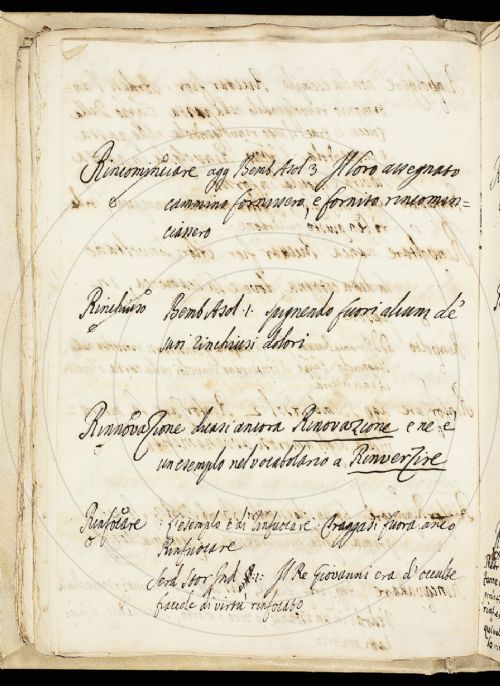 Rincominciare agg Bemb Asol 3 Il loro assegnato
cammino fornissero, e fornito rincomin=
ciassero
Rinchiuso Bemb Asol: 1. pignendo fuori alcun de'
suoi rinchiusi dolori
Rinnovazione dicasi ancora Rinovazione e ne, e
un esempio nel vocabolario a Rinverzire
Rinfocare l'esempio è di Rinfuocare. Traggasi fuora anco
Rinfuocare
Serd Stor Ind 1: Il Re Giovanni era d'occulte
faccole di virtù rinfocato